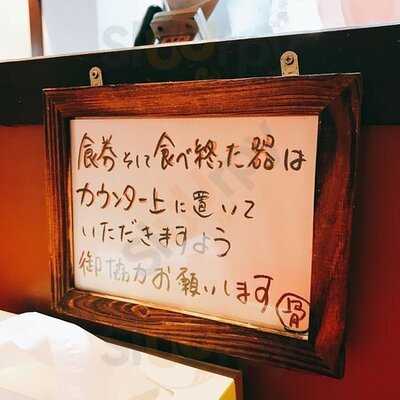 食券そして食べ終った器は
カウンター上に置いて
いただきますよう
御協力お願いします